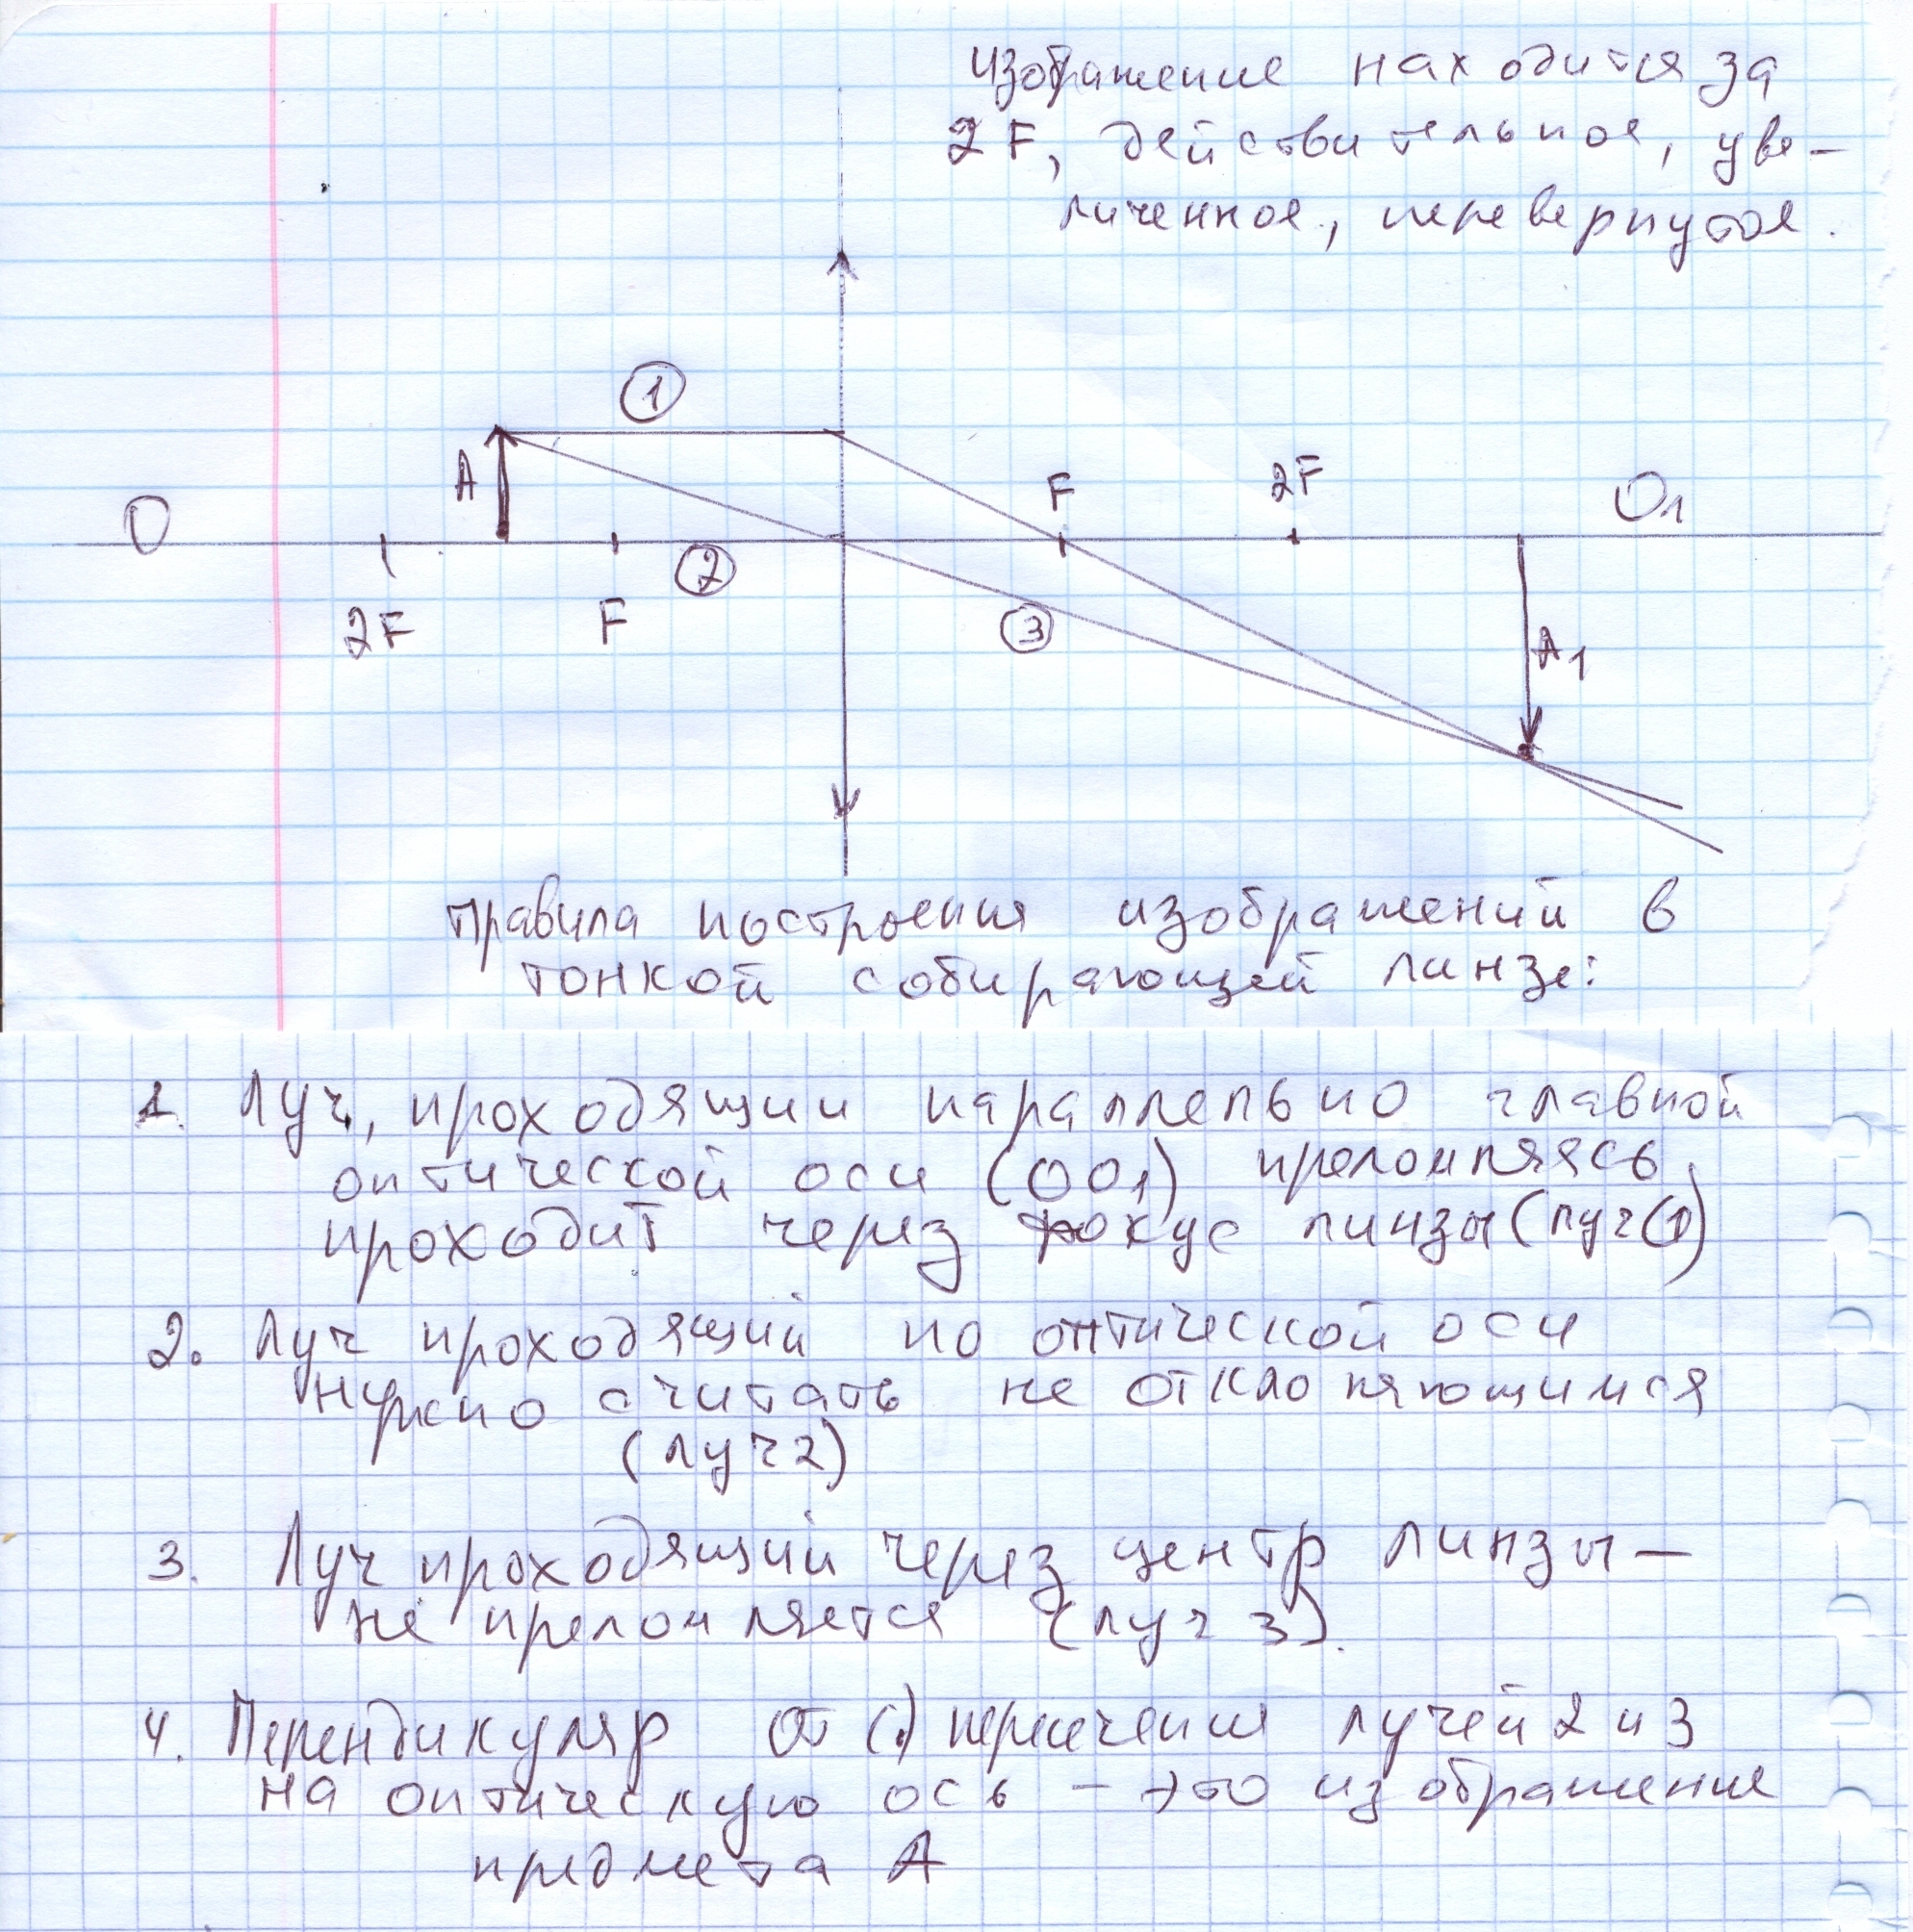 изображение находится за
2F, действительное, уве-
личенное, перевернутое.
1
A
F
2F
O
O1
2
2F
F
3
A1
правила построения изображений в
тонкой собирающей линзе:
1. Луч, проходящии параллельно главной
оптической оси (ОО1) преломляясь,
проходит через фокус линзы (луч(1)
2. Луч проходящий по оптической оси
нужно считать не отклоняющимся
(луч 2)
3. Луч проходящий через центр линзы —
не преломляется (луч 3).
4. Перендикуляр от (.) пересечения лучей 2 и 3
на оптическую ось - это изображение
предмета А